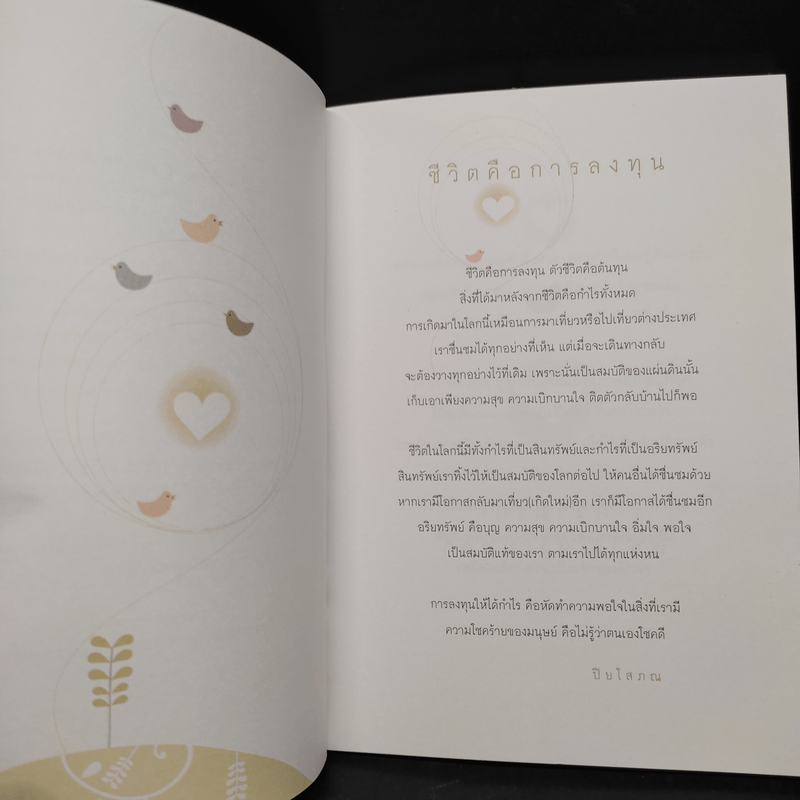 ชีวิตคือการลงทุน
ชีวิตคือการลงทุน ตัวชีวิตคือต้นทุน
สิ่งที่ได้มาหลังจากชีวิตคือกำไรทั้งหมด
การเกิดมาในโลกนี้เหมือนการมาเที่ยวหรือไปเที่ยวต่างประเทศ
เราชื่นชมได้ทุกอย่างที่เห็น แต่เมื่อจะเดินทางกลับ
จะต้องวางทุกอย่างไว้ที่เดิม เพราะนั่นเป็นสมบัติของแผ่นดินนั้น
เก็บเอาเพียงความสุข ความเบิกบานใจ ติดตัวกลับบ้านไปก็พอ
ชีวิตในโลกนี้มีทั้งกำไรที่เป็นสินทรัพย์และกำไรที่เป็นอริยทรัพย์
สินทรัพย์เราทิ้งไว้ให้เป็นสมบัติของโลกต่อไป ให้คนอื่นได้ชื่นชมด้วย
หากเรามีโอกาสกลับมาเที่ยว(เกิดใหม่)อีก เราก็มีโอกาสได้ชื่นชมอีก
อริยทรัพย์ คือบุญ ความสุข ความเบิกบานใจ อิ่มใจ พอใจ
เป็นสมบัติแท้ของเรา ตามเราไปได้ทุกแห่งหน
การลงทุนให้ได้กำไร คือหัดทำความพอใจในสิ่งที่เรามี
ความโชคร้ายของมนุษย์ คือไม่รู้ว่าตนเองโชคดี
ปิยโสภณ